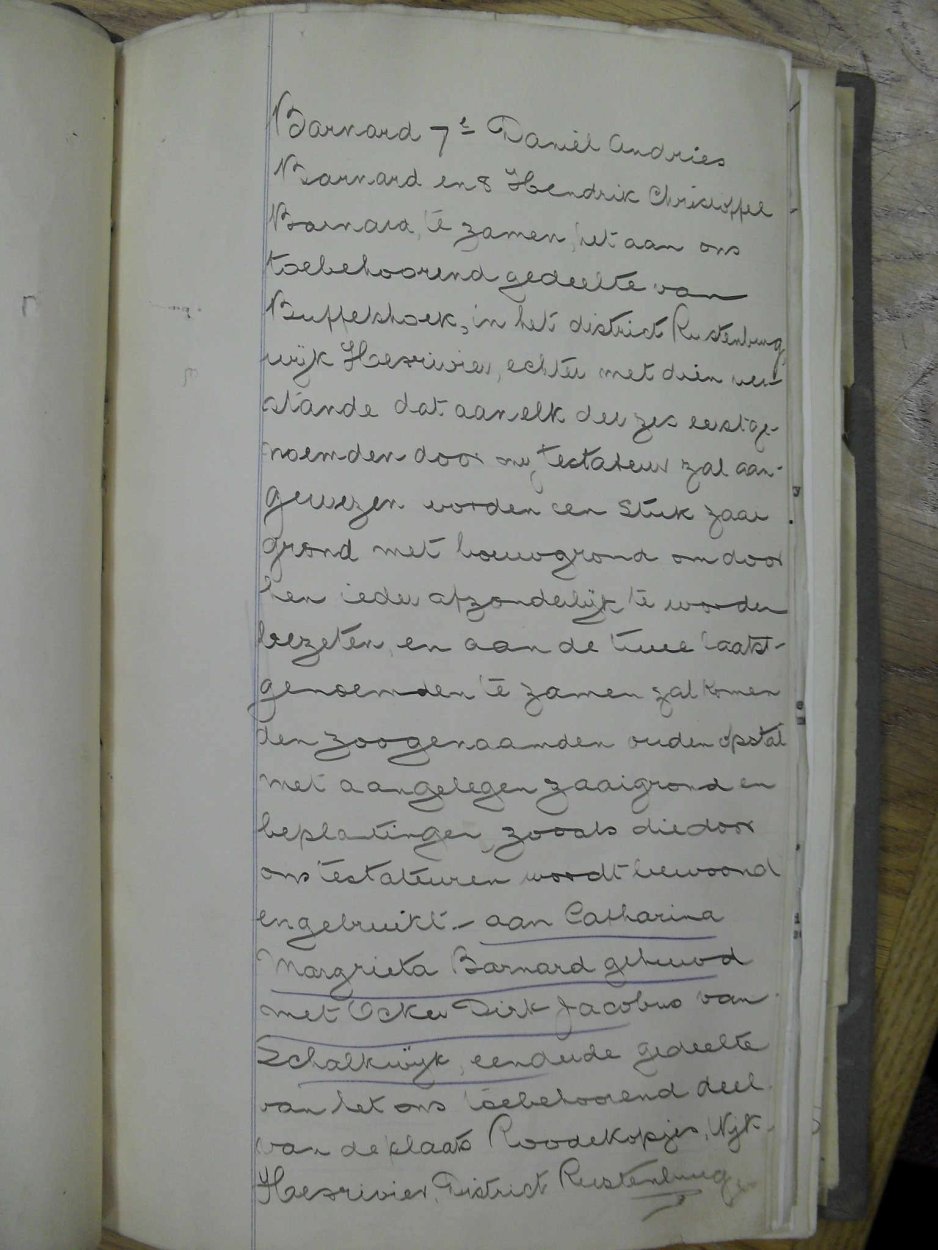 Barnard 7e Daniël Andries
Barnard en 8 Hendrik Christoffel
Barnard, te zamen, het aan ons
toebehoorend gedeelte van
Buffelshoek, in het district Rustenburg,
wijk Hexrivier, echter met dien ver-
stande dat aan elk der zes eerstge-
noemden door mij testateur zal aan-
gewezen worden een stuk zaai
grond met bouwgrond om door
hen ieder afzonderlijk te worden
bezeten, en aan de twee laatst-
genoemden te zamen zal komen
den zoogenaamden ouden opstal
met aangelegen zaaigrond en
beplantingen, zooals die door
ons testateuren wordt bewoond
en gebruikt. – aan Catharina
Margrieta Barnard gehuwd
met Ocker Dirk Jacobus van
Schalkwijk, eenderde gedeelte
van het ons toebehoorend deel
van de plaats Roodekopjes, Wijk
Hexrivier, District Rustenburg